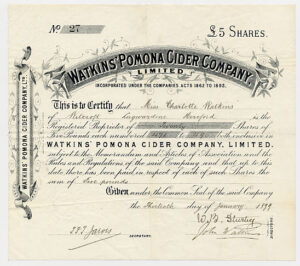 No 27 £5 SHARES.
WATKINS' POMONA CIDER COMPANY,
LIMITED.
INCORPORATED UNDER THE COMPANIES ACTS 1862 TO 1892.
This is to Certify that Miss Charlotte Watkins
of Lugwardine Hereford is the
Registered Proprietor of Twenty Shares of
Five Pounds each numbered inclusive in
WATKINS' POMONA CIDER COMPANY, LIMITED.
subject to the Memorandum and Articles of Association and the
Rules and Regulations of the said Company and that up to this
date there has been paid in respect of each of such Shares the
sum of Five pounds
Given under the Common Seal of the said Company
the Thirtieth day of January 1899
SECRETARY.
John Watkins
WATKINS' POMONA CIDER COMPANY, LTD.